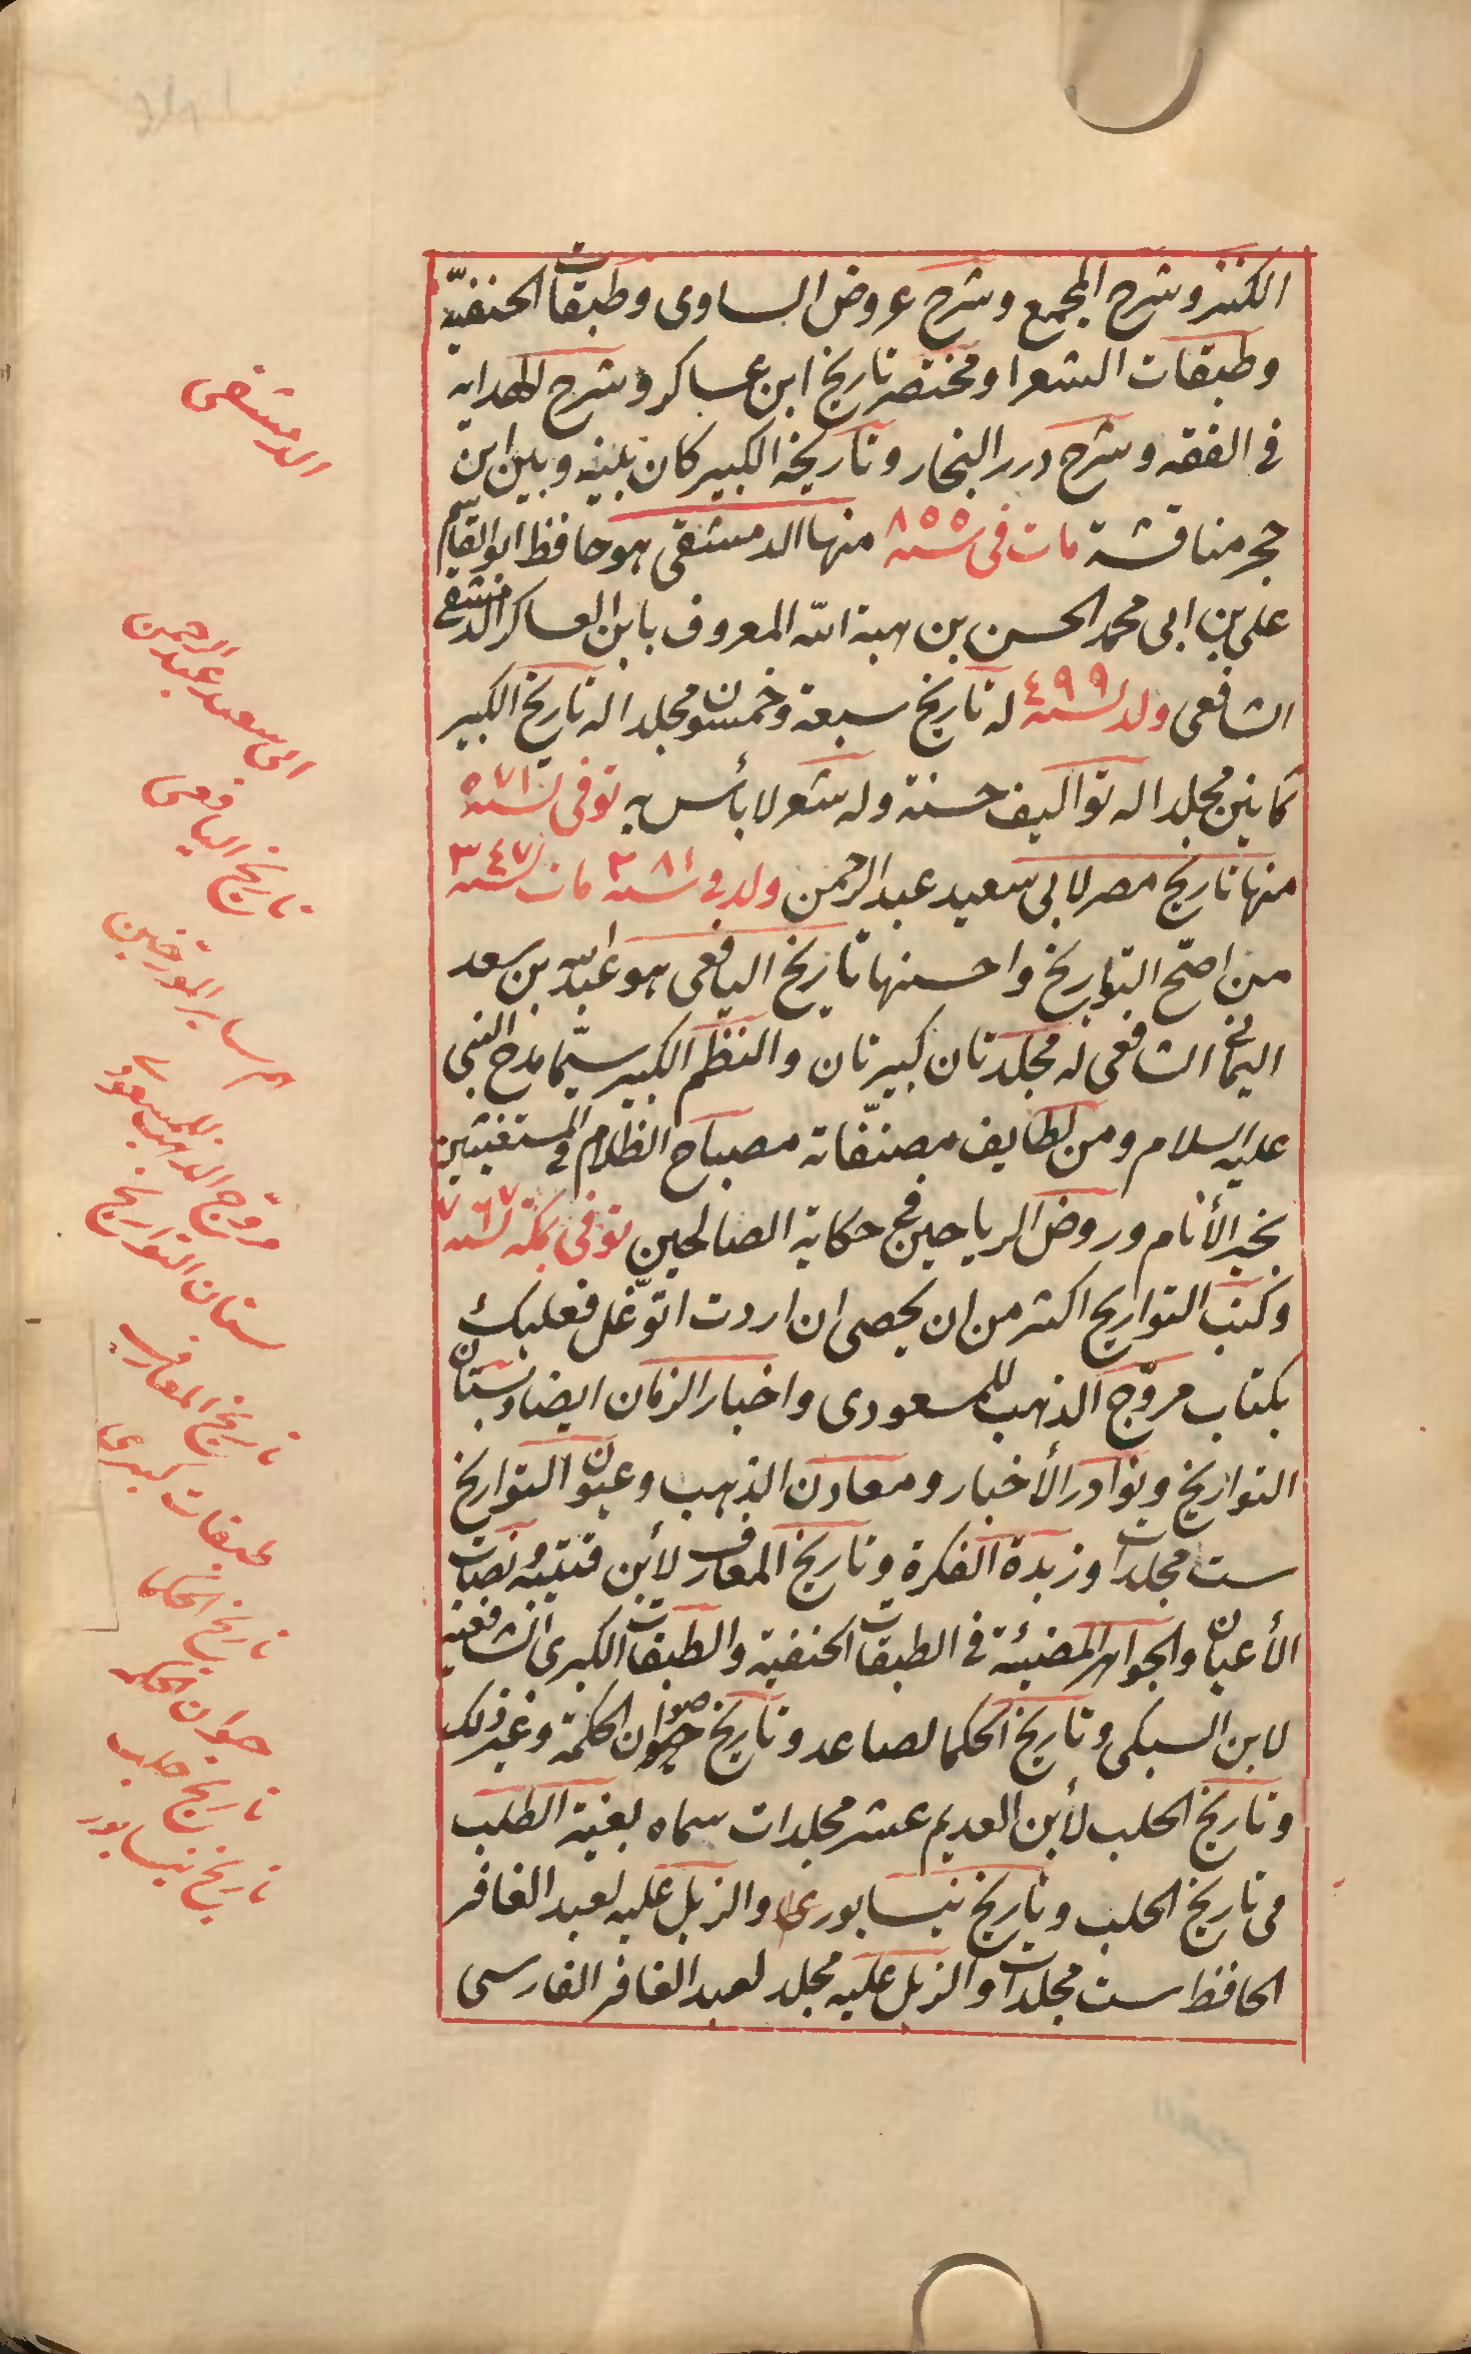 الكنز وشرح المجمع وشرح عروض الساوى وطبقات الحنفيّة
وطبقات الشعرا ومختصر تاريخ ابن عساكر وشرح الهدايه
فى الفقه وشرح درر البحار وتاريخه الكبير كان بينه وبين ابن
حجر مناقشة مات فى سنه ٨٥٥ منها الدمشقى هو حافظ ابو القاسم
على بن ابى محمد الحسن بن هبة الله المعروف بابن العساكر الدمشقى
الشافعى ولد لسنه ٤٩٩ له تاريخ سبعة وخمسون مجلدا له تاريخ الكبير
ثمانين مجلدا له تواليف حسنة وله شعر لا بأس به توفى لسنه ٥٧١
منها تاريخ مصر لابى سعيد عبد الرحمن ولد فى سنه ٢٨١ مات لسنه ٣٤٧
من اصّح التواريخ واحسنها تاريخ اليافعى هو عبد الله بن سعد
اليمانى الشافعى له مجلدتان كبيرتان والنظم الكبير سيّما مدح النبى
عليه السلام ومن لطايف مصنّفاته مصباح الظلام فى المستغيثين
بخير الأنام وروض الرياحين فى حكاية الصالحين توفى بمكة لسنه ٧٦٧
وكتب التواريخ اكثر من ان يحصى ان اردت اتوّغل فعليك
بكتاب مروّج الذهب للمسعودى واخبار الزمان ايضا وبستان
التواريخ ونوادر الأخبار ومعادن الذهب وعيون التواريخ
ست مجلدات وزبدة الفكرة وتاريخ المعارف لأبن قتيبه و
الأعيان والجواهر المضيئة فى الطبقات الحنفية والطبقات الكبرى الشافعية
لابن السبكى وتاريخ الحكما لصاعد وتاريخ صوان الحكمة وغير ذلك
وتاريخ الحلب لأبن العديم عشر مجلدات سماه بغية الطلب
فى تاريخ الحلب وتاريخ نيسابورى والزيل عليه لعبد الغافر
الحافظ ست مجلدات والزيل عليه مجلد لعبد الغافر الفارسى
الدمشقى
ابى سعيد عبد الرحمن
تاريخ اليافعى
سائر المورّخين
مروّج الذهب للمسعودى
بستان التواريخ
تاريخ المعارف
طبقات كبرى
تاريخ الحكما
صوان الحكمه
تاريخ حلب
تاريخ نيسابور